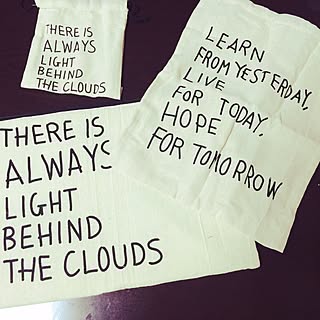 THERE IS
ALWAYS
LIGHT
BEHIND
THE CLOUDS
LEARN
FROM YESTERDAY,
LIVE
FOR TODAY,
HOPE
FOR TOMORROW
THERE IS
ALWAYS
LIGHT
BEHIND
THE CLOUDS